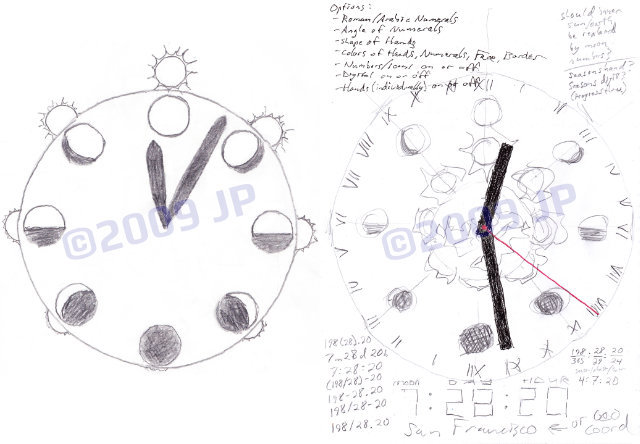 Options:
-Roman/Arabic Numerals
-Angle of Numerals
-Shape of Hands
-Colors of Hands, Numerals, Face, Border
-Numbers/Icons on or off
-Digital on or off
-Hands (individually) on or off
should inner
sun/earth
be replaced
by moon
numbers?
Seasons hand?
Seasons digits?
©2009 JP
©2009 JP
XII
I
IX
VIII
VII
VI
V
IV
III
198(28).20
7:28-20
(198/28)-20
198-28.20
198/28-20
198/28.20
198.28.20
365 29 24
4:7:20
moon DAY HOUR
7:28:20
San Francisco ← or GEO
Coord